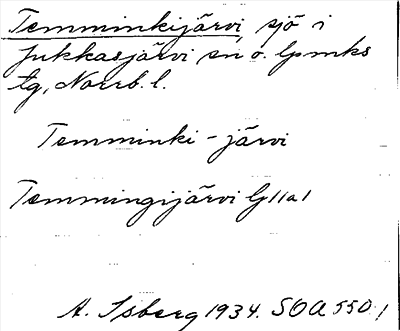 Temminkijärvi, sjö i
Jukkasjärvi sn o. lpmks
tg, Norrb. l.
Temminki-järvi
Temmingijärvi G11a1
A. Isberg 1934. SOA 550:1